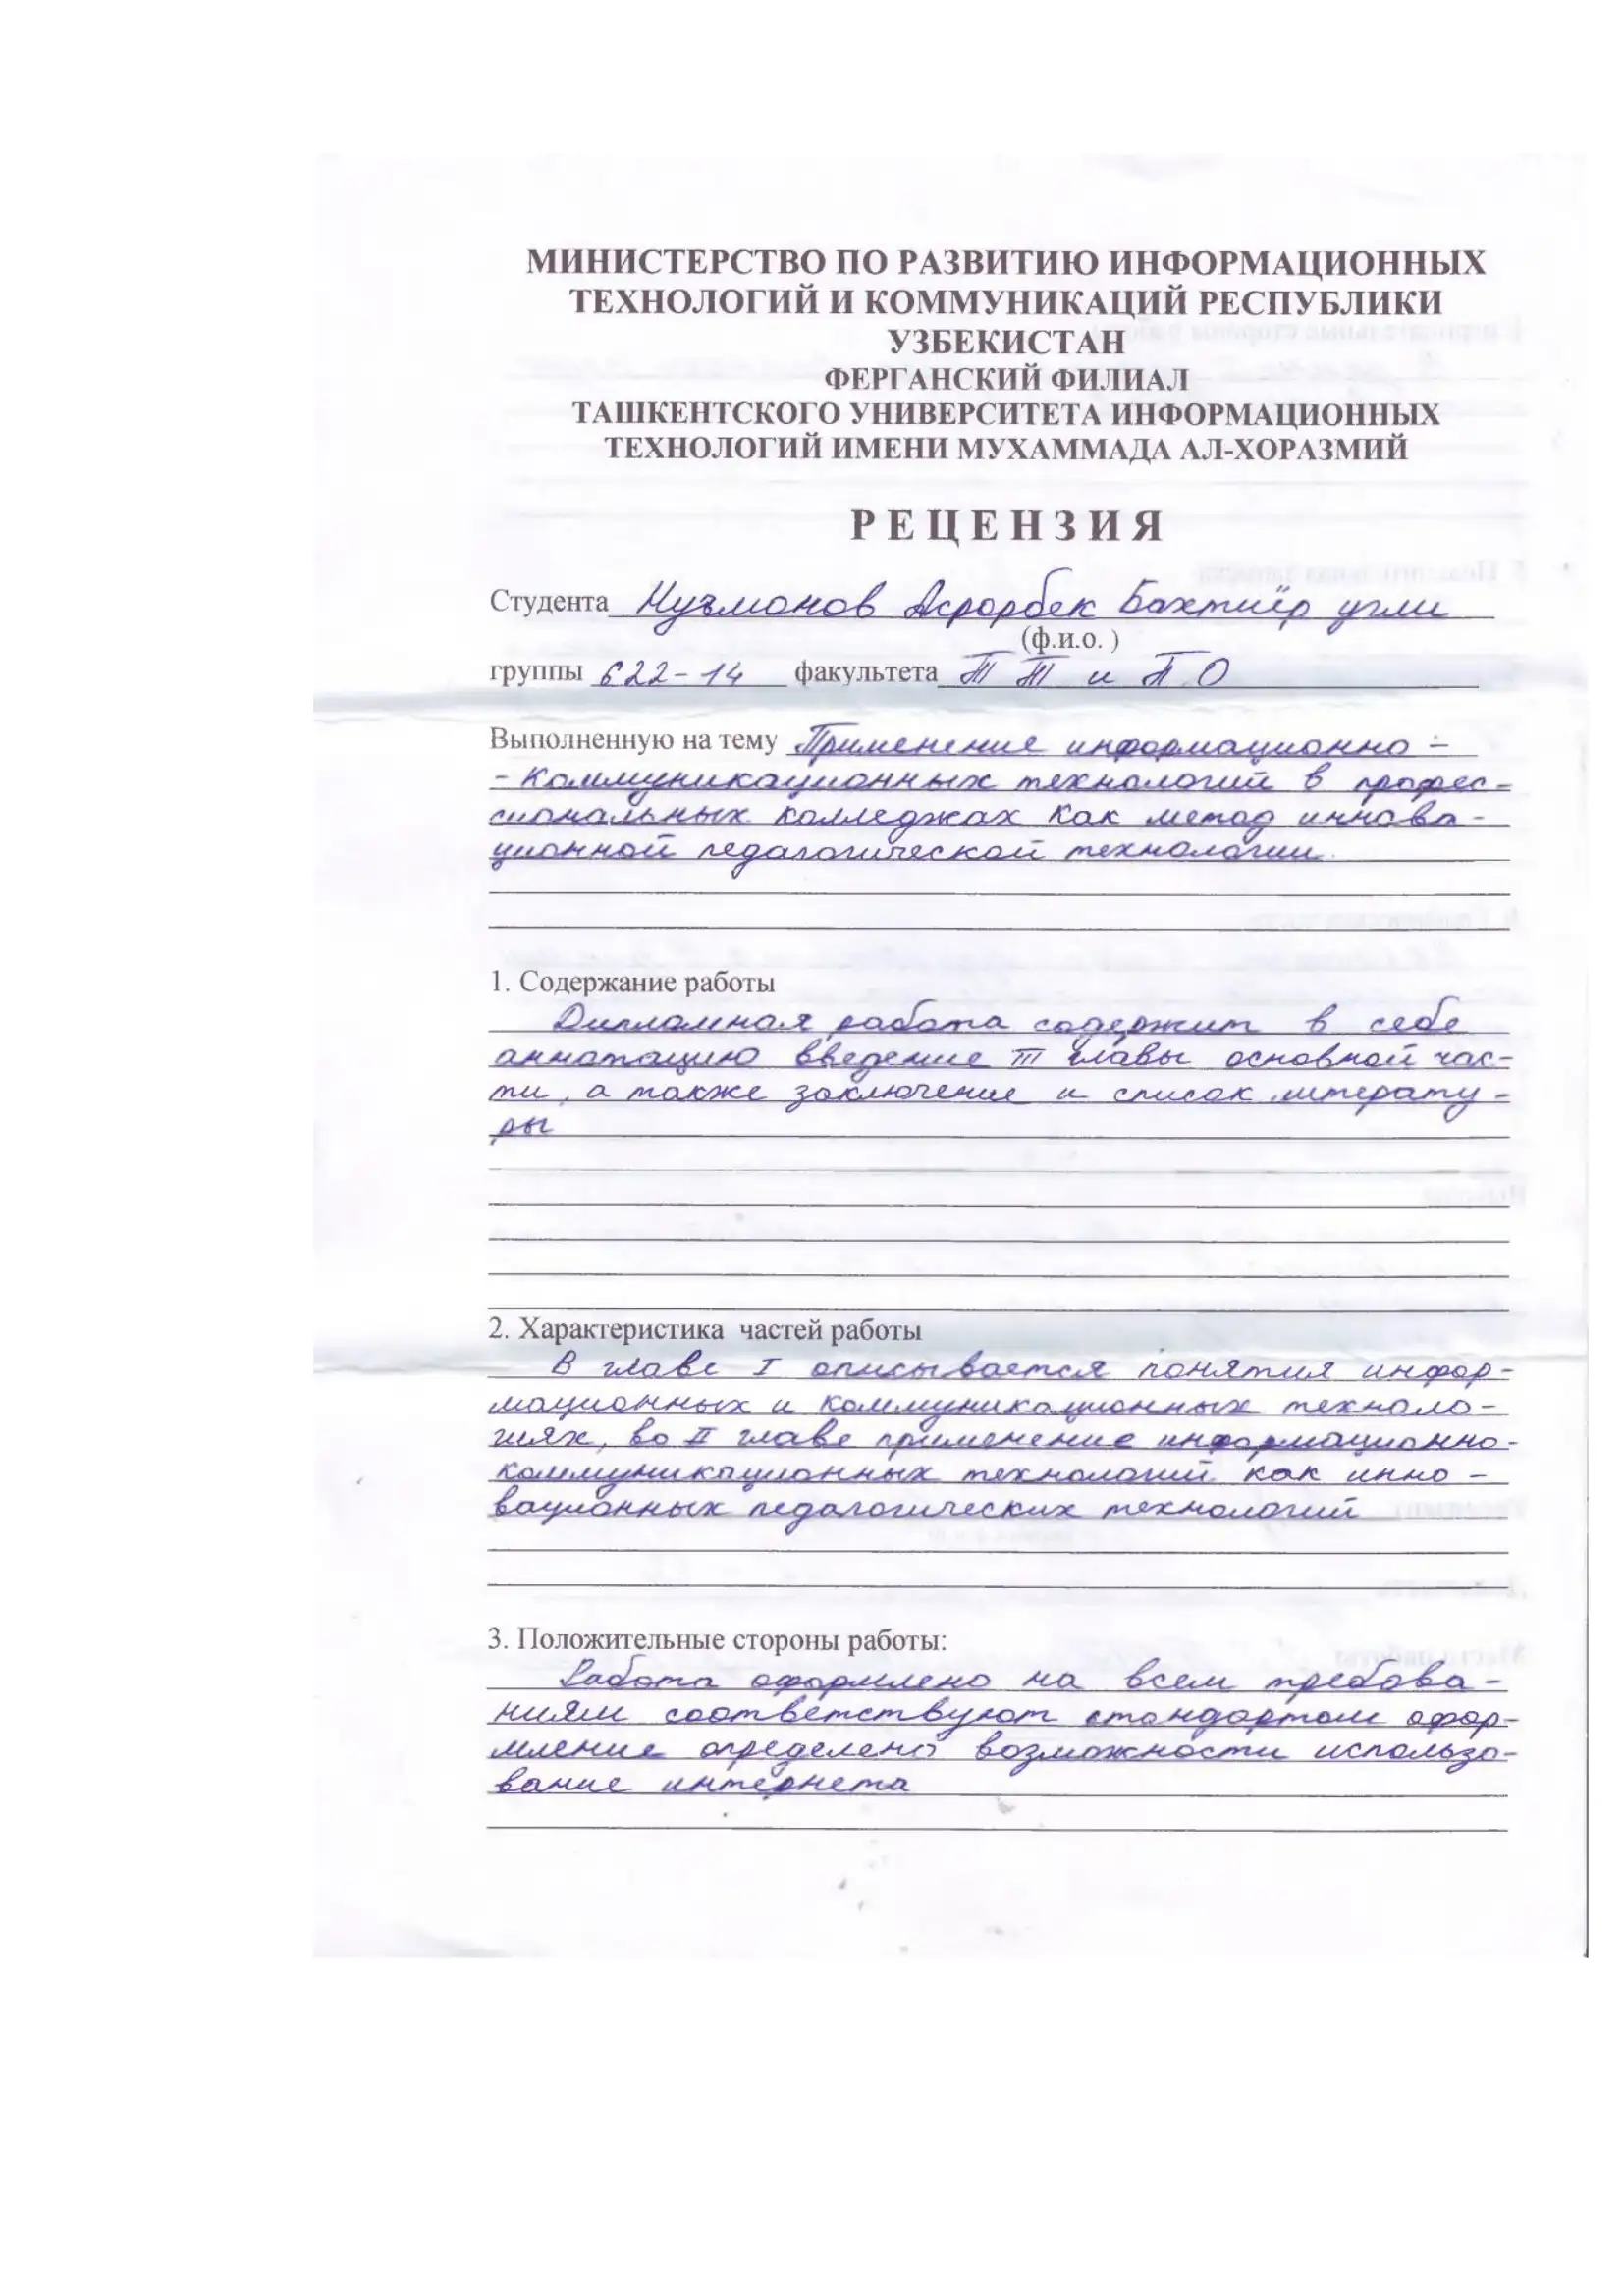 МИНИСТЕРСТВО ПО РАЗВИТИЮ ИНФОРМАЦИОННЫХ
ТЕХНОЛОГИЙ И КОММУНИКАЦИЙ РЕСПУБЛИКИ
УЗБЕКИСТАН
ФЕРГАНСКИЙ ФИЛИАЛ
ТАШКЕНТСКОГО УНИВЕРСИТЕТА ИНФОРМАЦИОННЫХ
ТЕХНОЛОГИЙ ИМЕНИ МУХАММАДА АЛ-ХОРАЗМИЙ
РЕЦЕНЗИЯ
Студента Нуъмонов Асрорбек Бахтиёр угли
(ф.и.о. )
группы 622-14 факультета ТТ и ПО
Выполненную на тему Применение информационно -
- Коммуникационных технологий в профес-
сиональных колледжах как метод иннова-
ционной педагогической технологии.
1. Содержание работы
Дипломная работа содержит в себе
аннотацию введение III главы основной час-
ти, а также заключение и список литерату-
ры
2. Характеристика частей работы
В главе I описывается понятия инфор-
мационных и коммуникационных техноло-
гиях, во II главе применение информационно-
коммуникационных технологий как инно-
вационных педагогических технологий
3. Положительные стороны работы:
Работа оформлено на всем требова-
ниям соответствуют стандартом офор-
мление определено возможности использо-
вание интернета